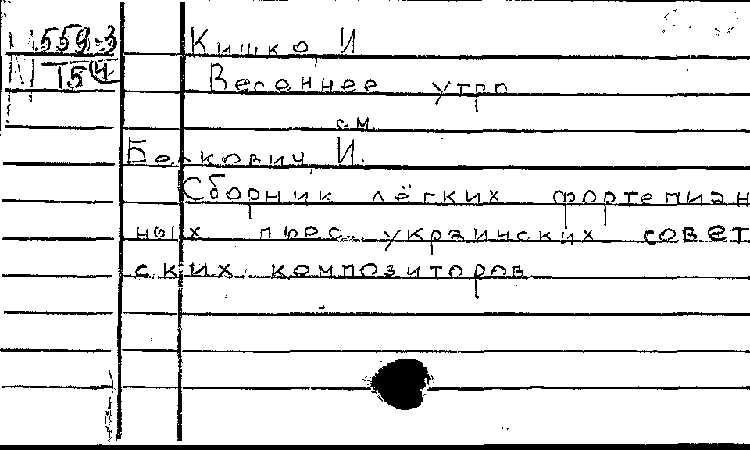 559-3
Кишко, И
154
Весеннее утро
см.
Беркович, И.
Сборник лёгких фортепиан
ных пьес украинских совет
ских композиторов